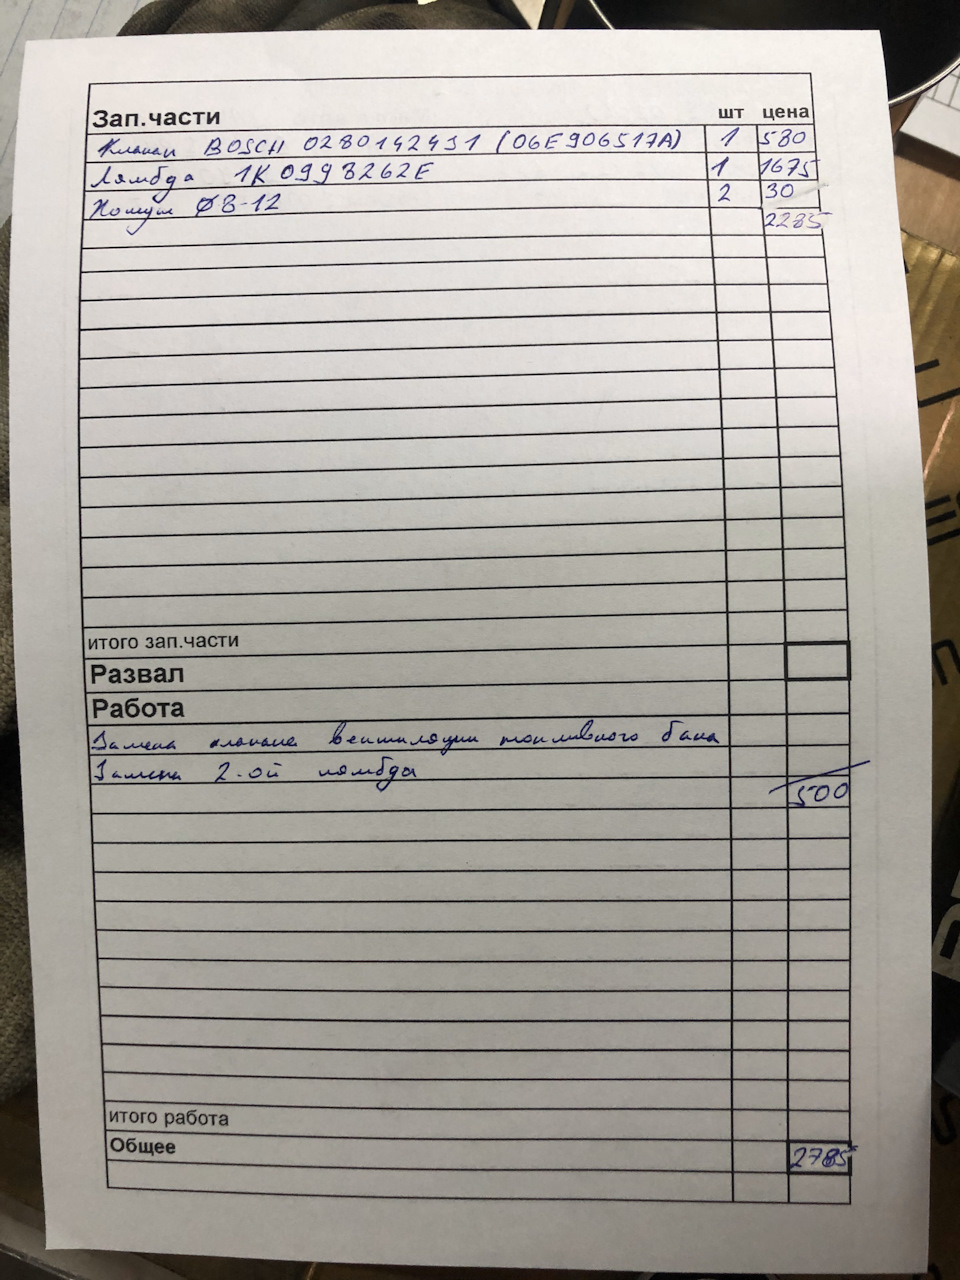 Зап.части шт цена
Клапан BOSCH 0280142431 (06E906517A) 1 580
Лямбда 1K0998262E 1 1675
Хомут Ø8-12 2 30
2285
итого зап.части
Развал
Работа
Замена клапана вентиляции топливного бака
Замена 2-ой лямбды
500
итого работа
Общее 2785